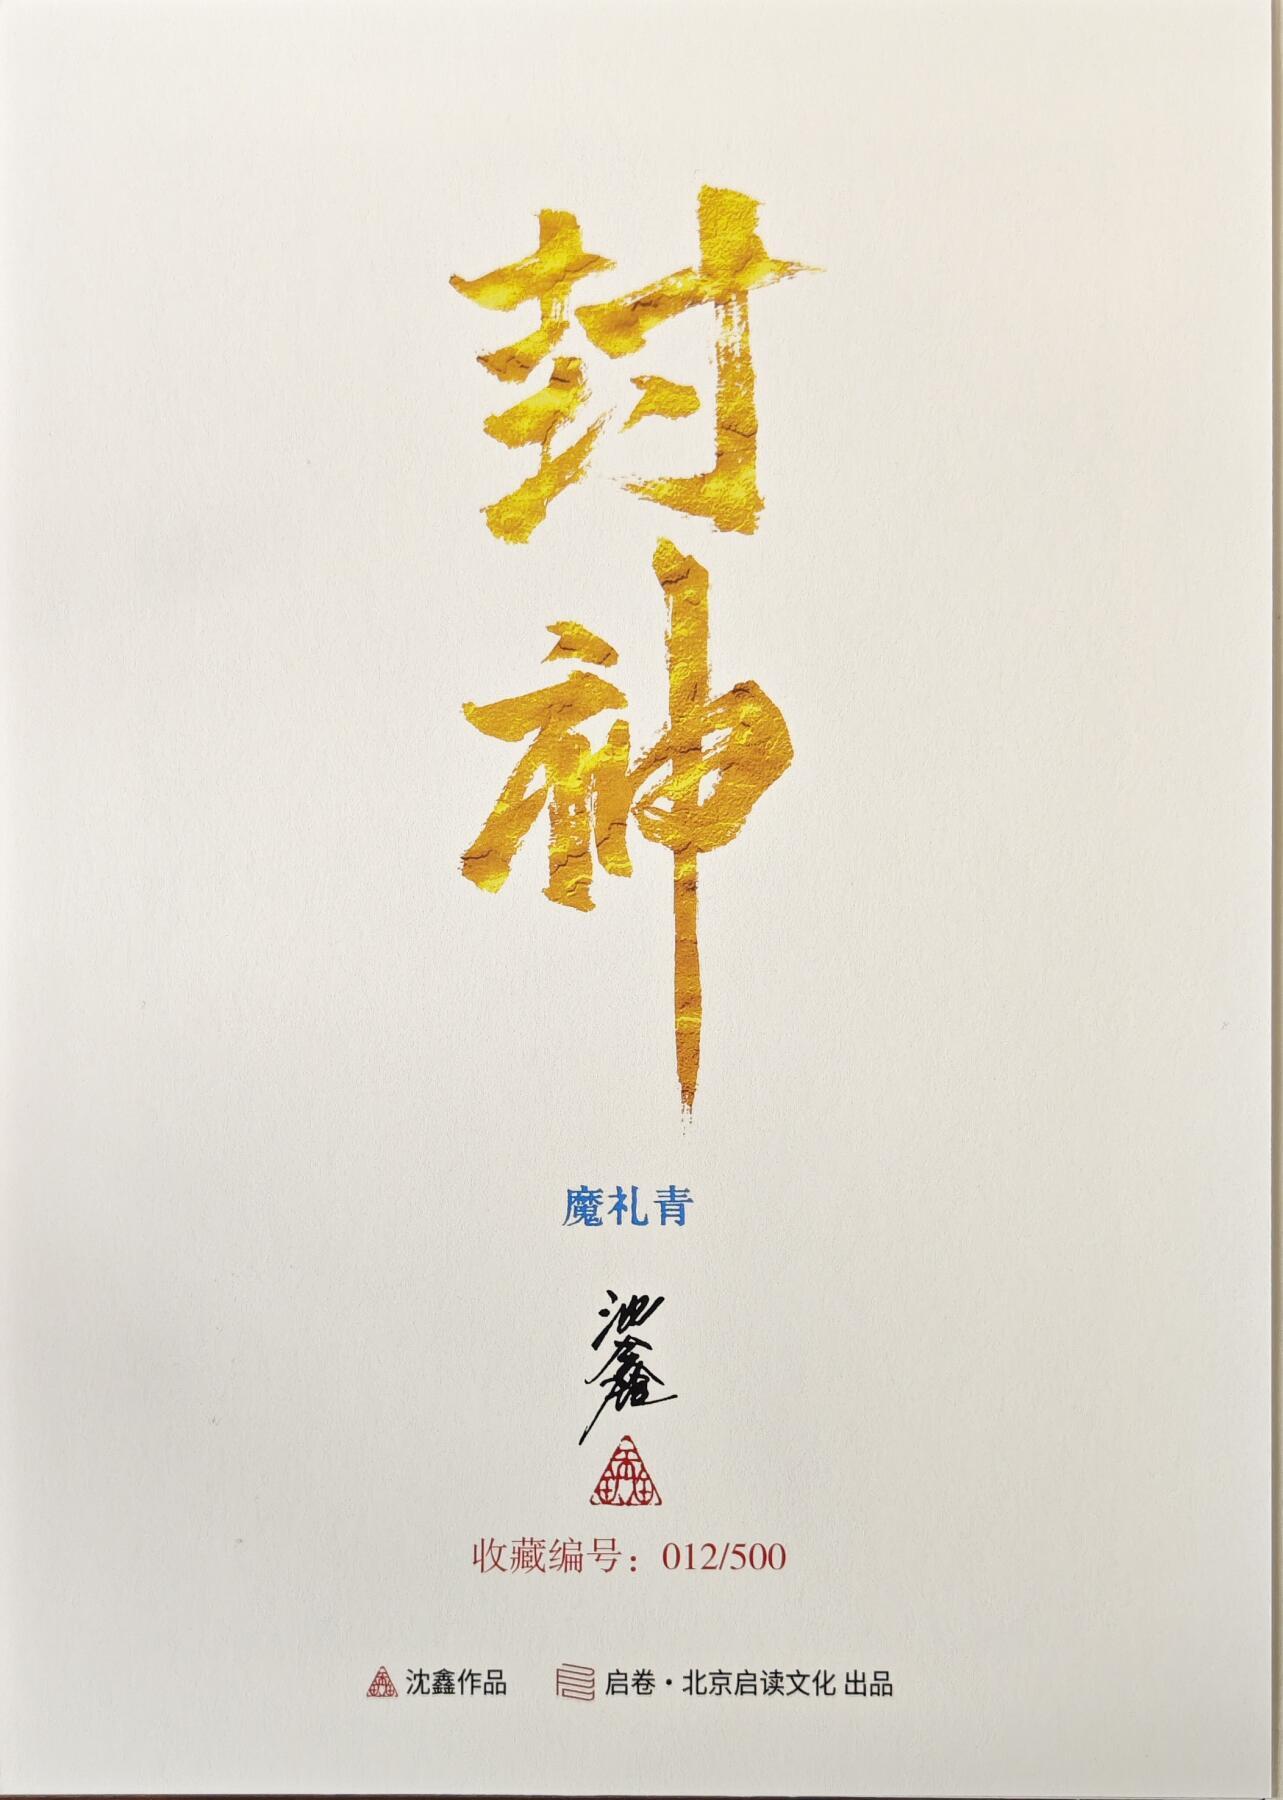 封神
魔礼青
沈鑫
收藏编号：012/500
沈鑫作品
启卷·北京启读文化 出品